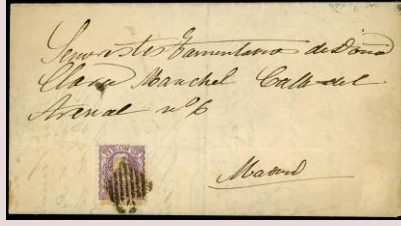 Señores testamentarios de Doña
Clara Manchel Calle del
Arenal nº 6
Madrid